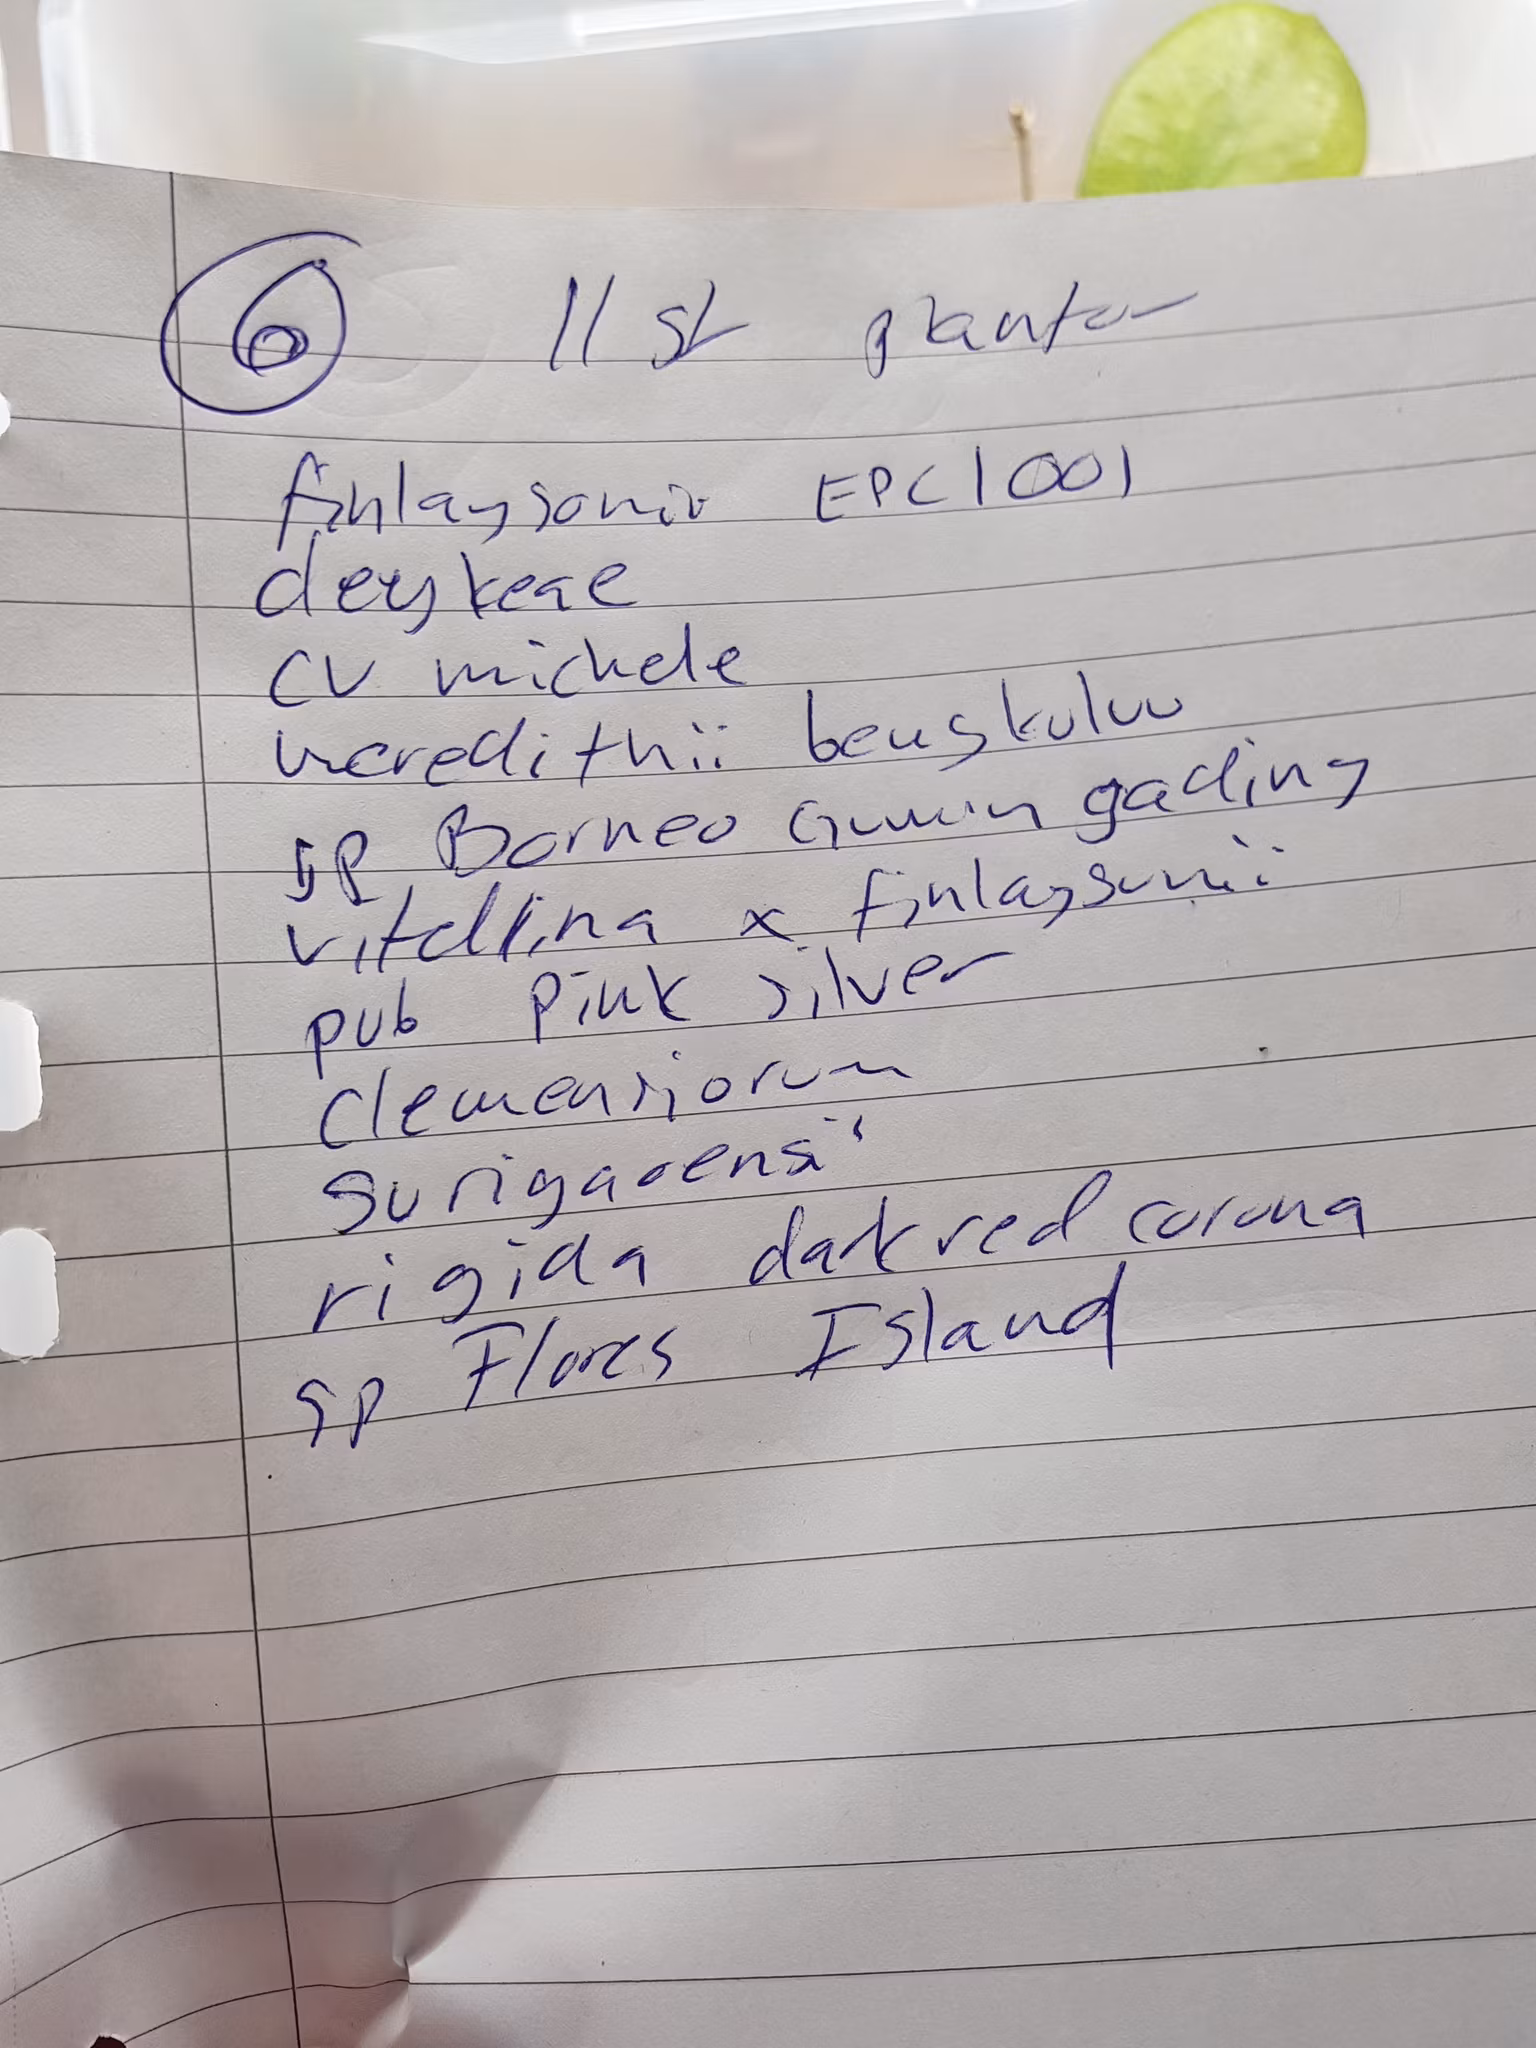 6 11 st plantor
finlaysonii EPC 1001
deykeae
CV michele
meredithii bengkulu
sp Borneo Gunung gading
vitellina x finlaysonii
pub pink silver
clemensiorum
surigaoensis
rigida dark red corona
sp Flores Island